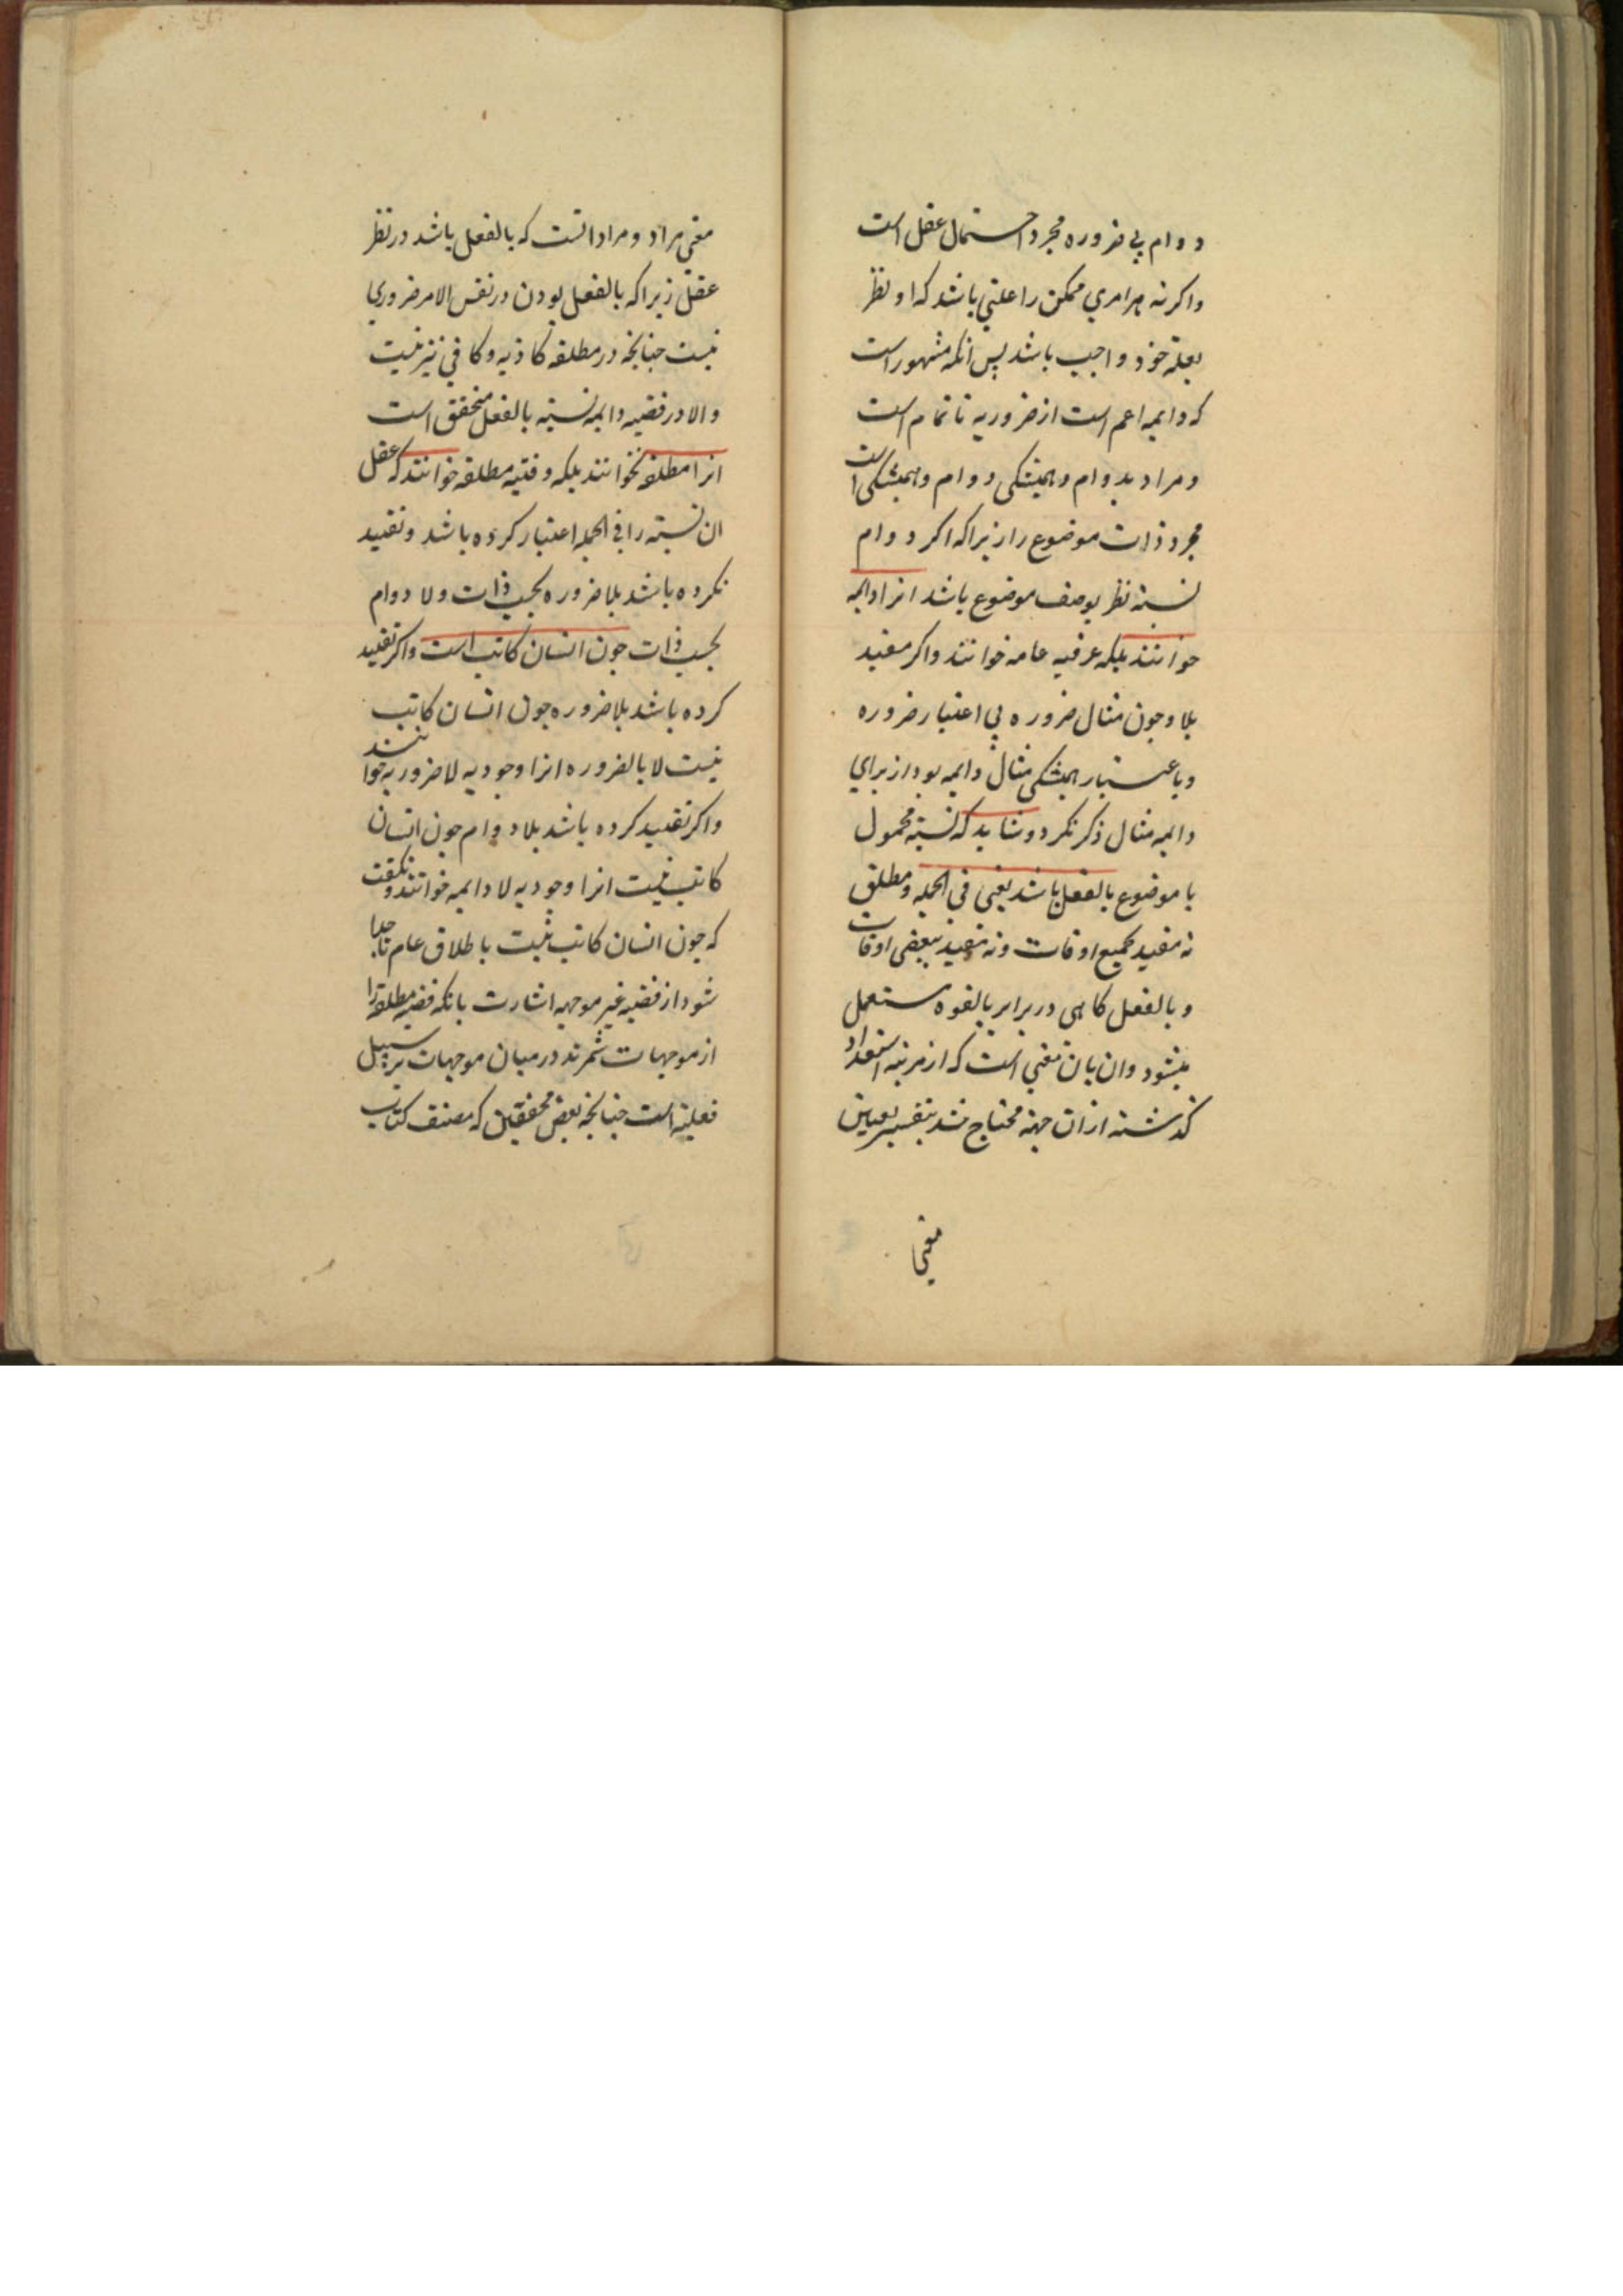 دوام بی ضروره مجرد احتمال عقل است
واکرنه هر امری ممکن را علتی باشد که او نظر
بعلة خود واجب باشد پس انکه مشهور است
که دایمه اعم است از ضروریه نا تمام است
و مراد بدوام و همیشکی دوام و همیشکی است
مجرد ذات موضوع را زیرا که اکر دوام
نسبة نظر بوصف موضوع باشد انرا دایمه
خوانند بلکه عرفیه عامه خوانند واکر مقید
بلا و چون مثال ضروره بی اعتبار ضروره
و باعتبار همیشکی مثال دایمه بود از برای
دایمه مثال ذکر نکرد و شاید که نسبة محمول
با موضوع بالفعل باشد یعنی فی الجمله و مطلق
نه مقید بجمیع اوقات و نه مقید ببعضی اوقات
و بالفعل کاهی در برابر بالقوه مستعمل
میشود و ان بان معنی است که از مرتبه استعداد
کذشته ازان جهة محتاج شد بتفسیر بعین
معنی
معنی مراد و مراد انست که بالفعل باشد در نظر
عقل زیرا که بالفعل بودن در نفس الامر ضروری
نیست جنانچه در مطلقه کاذبه و کافی نیز نیست
والا در قضیه دایمه نسبة بالفعل متحقق است
انرا مطلقه نخوانند بلکه وقتیه مطلقه خوانند که عقل
ان نسبة را فی الجمله اعتبار کرده باشد و تقیید
نکرده باشد بلا ضروره بحسب ذات ولا دوام
بحسب ذات جون انسان کاتب است واکر تقیید
کرده باشد بلا ضروره جون انسان کاتب
نیست لا بالضروره انرا وجودیه لا ضروریه خوانند
واکر تقیید کرده باشد بلا دوام جون انسان
کاتب نیست انرا وجودیه لا دایمه خوانند و نکفت
که جون انسان کاتب نیست باطلاق عام تا جدا
شود از قضیه غیر موجهه اشارت بانکه قضیه مطلقه را
از موجهات شمرند در میان موجهات بر سبیل
فعلیة است جنانچه بعض محققین که مصنف کتاب